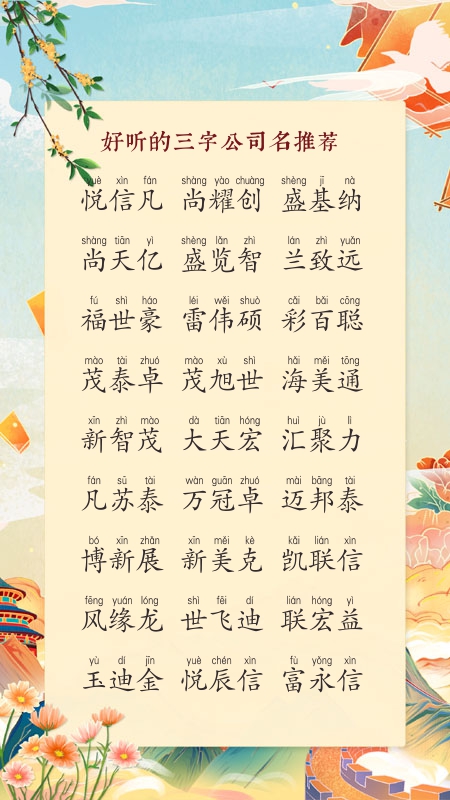 好听的三字公司名推荐
yuè xìn fán shàng yào chuàng shèng jī nà
悦信凡 尚耀创 盛基纳
shàng tiān yì shèng lǎn zhì lán zhì yuǎn
尚天亿 盛览智 兰致远
fú shì háo léi wěi shuò cǎi bǎi cōng
福世豪 雷伟硕 彩百聪
mào tài zhuó mào xù shì hǎi měi tōng
茂泰卓 茂旭世 海美通
xīn zhì mào dà tiān hóng huì jù lì
新智茂 大天宏 汇聚力
fán sū tài wàn guān zhuó mài bāng tài
凡苏泰 万冠卓 迈邦泰
bó xīn zhǎn xīn měi kè kǎi lián xìn
博新展 新美克 凯联信
fēng yuán lóng shì fēi dí lián hóng yì
风缘龙 世飞迪 联宏益
yù dí jīn yuè chén xìn fù yǒng xìn
玉迪金 悦辰信 富永信